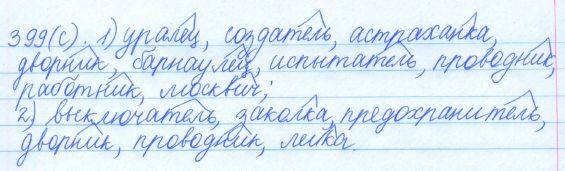 399(с). 1) уралец, создатель, астраханка,
дворник, барнаулец, испытатель, проводник,
работник, москвич;
2) выключатель, заколка, предохранитель,
дворник, проводник, лейка.